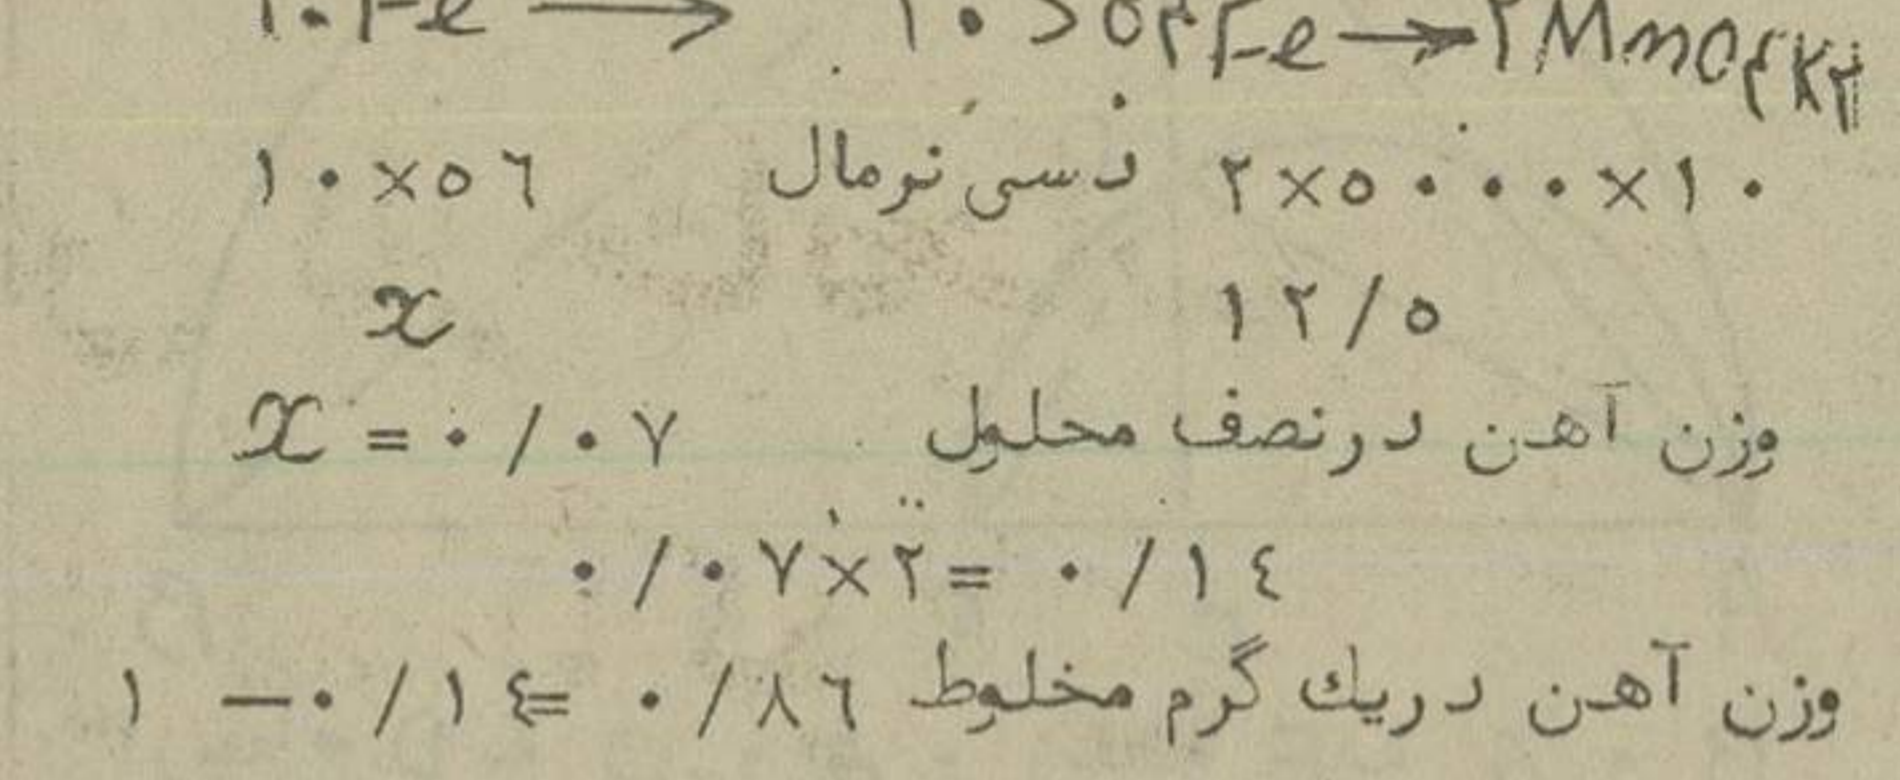 ۱۰Fe ⟶ ۱۰SO۴Fe ⟶ ۲MnO۴K
۱۰×۵۶ دسی نرمال ۲×۵۰۰۰×۱۰
x ۱۲/۵
x = ۰/۰۷ وزن آهن درنصف محلول
۰/۰۷×۲= ۰/۱٤
۱ —۰/۱٤= ۰/۸٦ وزن آهن دریك گرم مخلوط